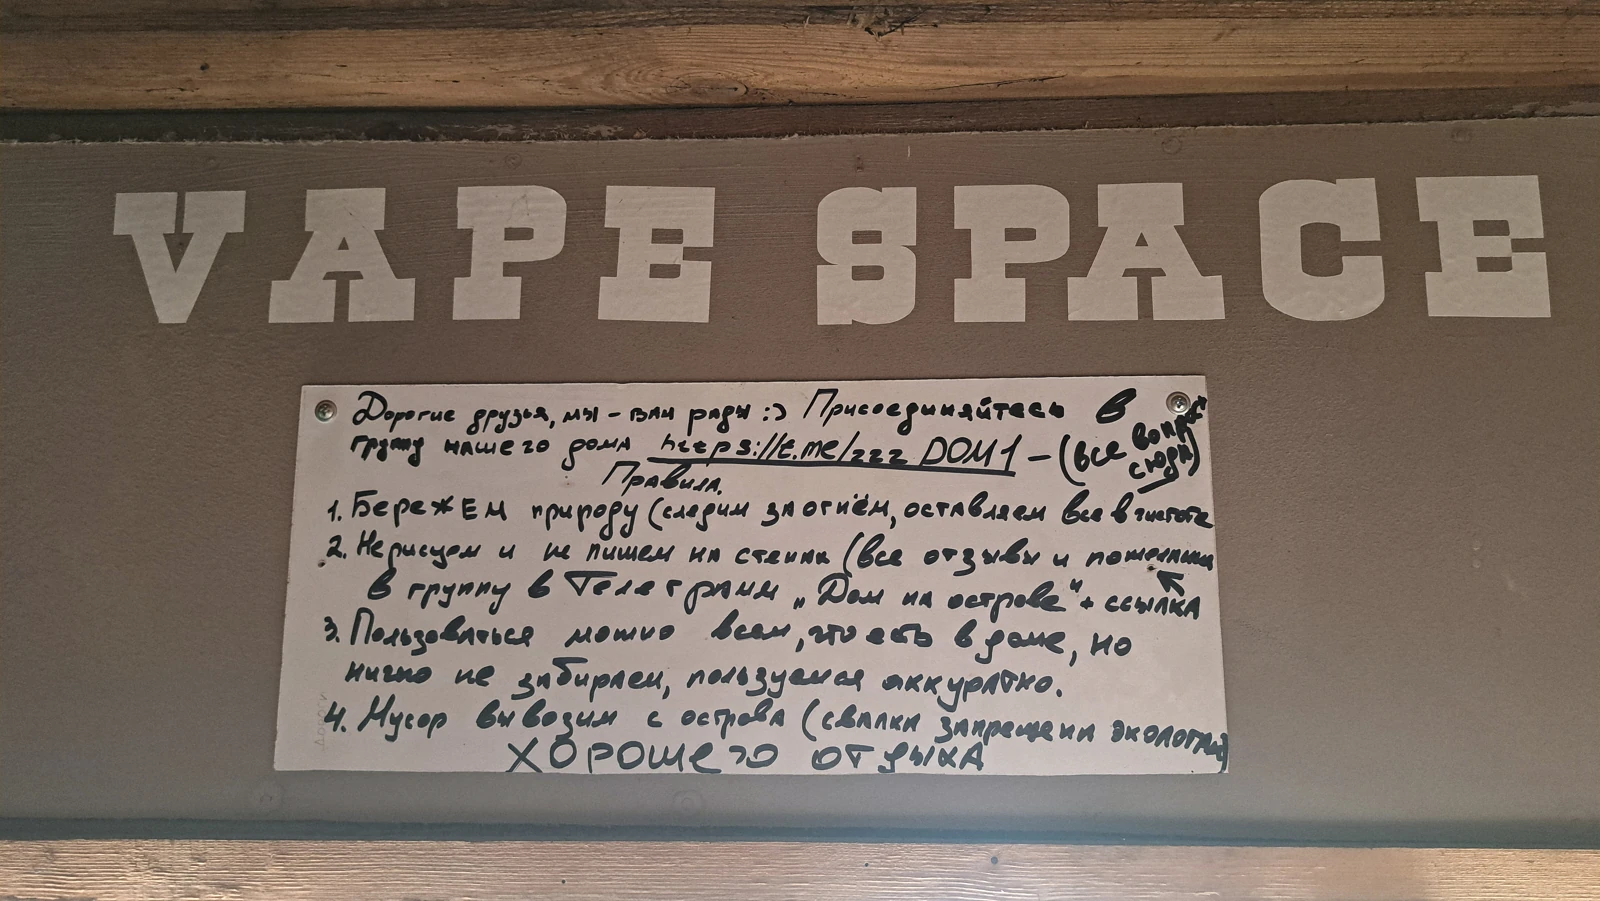 VAPE SPACE
Дорогие друзья, мы - вам рады :) Присоединяйтесь в
группу нашего дома https://t.me/zzz DOM1 - (все вопр
сюда)
Правила.
1. БережЕм природу (следим за огнём, оставляем все в чистоте
2. Не рисуем и не пишем на стенах (все отзывы и пожелания
в группу в Телеграмм „Дом на острове" + ссылка
3. Пользоваться можно всем, что есть в доме, но
ничго не забираем, пользуемся аккуратно.
4. Мусор вывозим с острова (свалка запрещена экологами)
ХОРОШЕГО ОТДЫХА